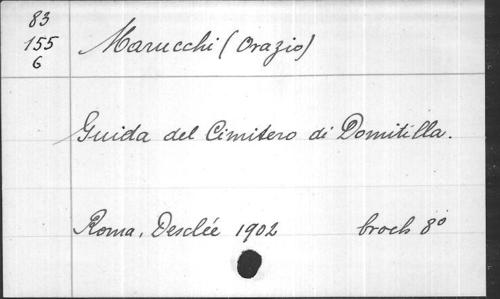 83
155
6
Marucchi (Orazio)
Guida del Cimitero di Domitilla.
Roma. Desclée 1902 broch 8°